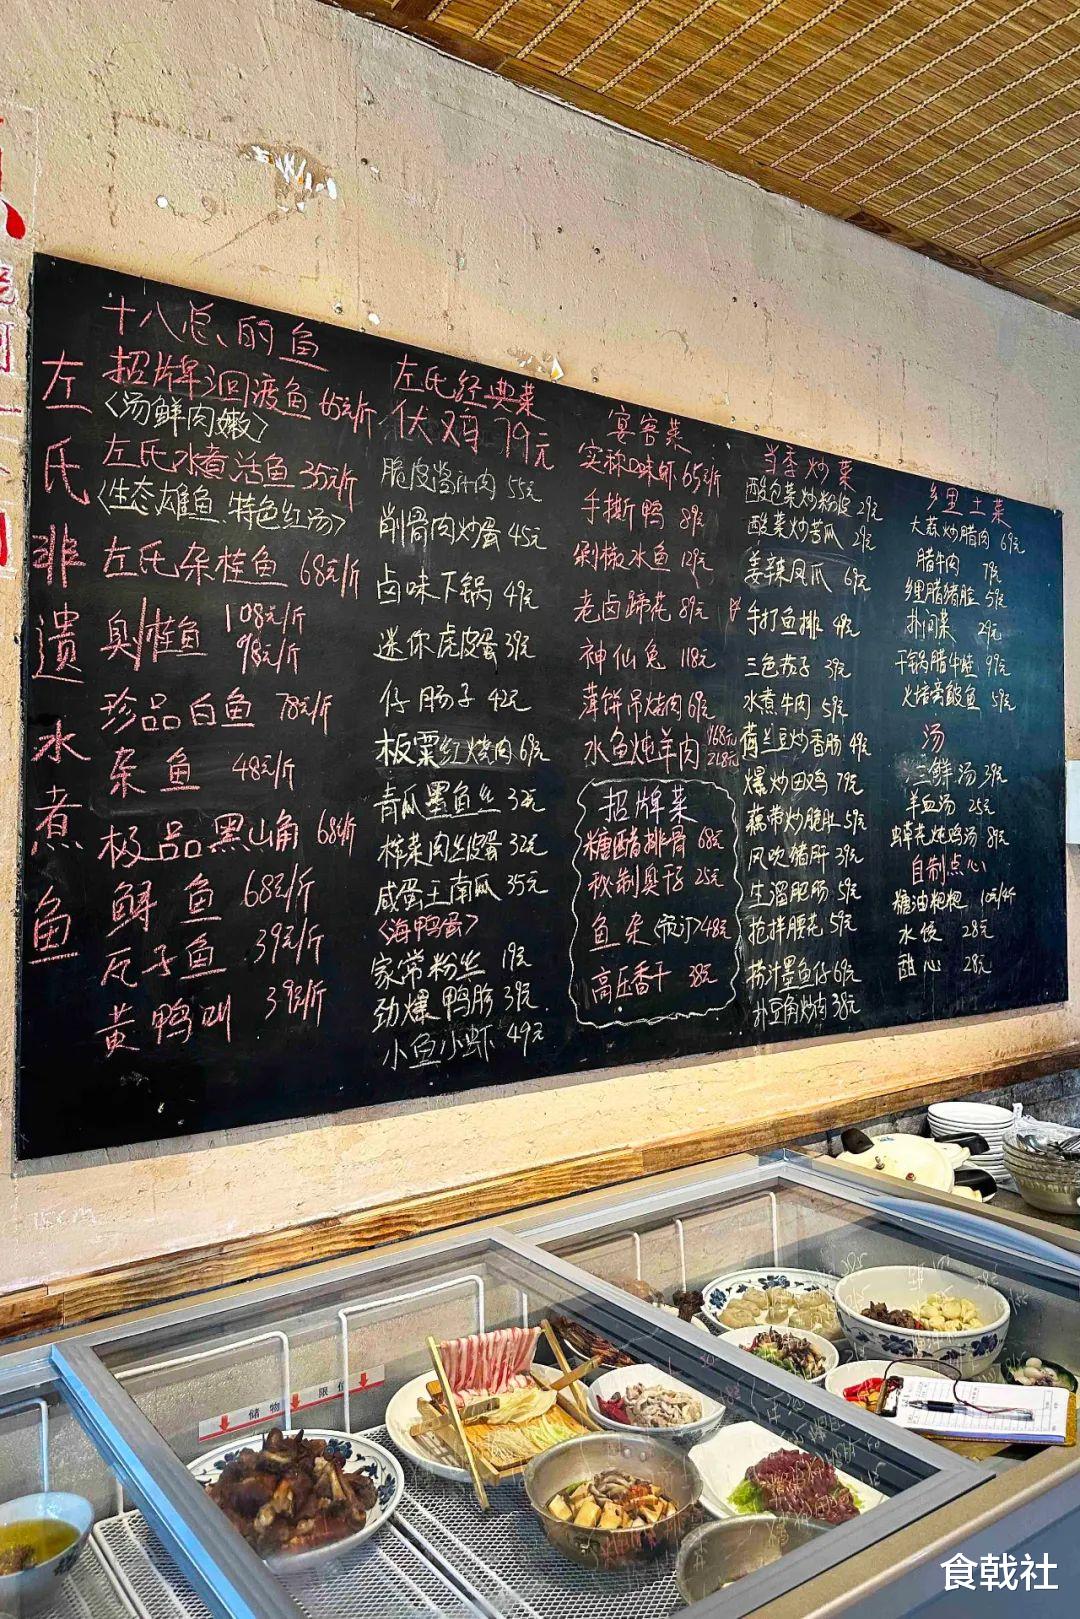 左氏非遗水煮鱼
十八总的鱼
招牌洄渡鱼
<汤鲜肉嫩>
左氏水煮活鱼 35元/斤
<生态雄鱼.特色红汤>
左氏杂桂鱼 68元/斤
臭桂鱼 108元/斤
98元/斤
珍品白鱼 78元/斤
杂鱼 48元/斤
极品黑山角 68/斤
鲟鱼 68元/斤
瓦子鱼 39元/斤
黄鸭叫 39元/斤
左氏经典菜
伏鸡 79元
脆皮酱汁肉 55元
削骨肉炒蛋 45元
卤味下锅 49元
迷你虎皮蛋 39元
仔肠子 42元
板栗红烧肉 69元
青瓜墨鱼丝 32元
榨菜肉丝皮蛋 32元
咸蛋王南瓜 35元
<海鸭蛋>
家常粉丝 19元
劲爆鸭胗 39元
小鱼小虾 49元
宴客菜
实称口味虾 65元/斤
手撕鸭 89元
剁椒水鱼 129元
老卤蹄花 89元
神仙兔 118元
薄饼吊烧肉 69元
水鱼炖羊肉 168元
218元
招牌菜
糖醋排骨 68元
秘制臭干 25元
鱼杂(预订)48元
高压香干 38元
当季炒菜
酸包菜炒粉皮 29元
酸菜炒苦瓜 29元
姜辣凤爪 69元
手打鱼排 49元
三色茄子 39元
水煮牛肉 59元
荷兰豆炒香肠 49元
爆炒田鸡 79元
藕带炒脆肚 59元
风吹猪肝 39元
生溜肥肠 59元
抢拌腰花 59元
捞汁墨鱼仔 69元
扑豆角炒肉 38元
乡里土菜
大蒜炒腊肉 69元
腊牛肉 79元
乡里腊猪脸 59元
扑闷菜 29元
干锅腊牛蛙 99元
火焙翕皴鱼 59元
汤
三鲜汤 39元
羊血汤 25元
虫草花炖鸡汤 89元
自制点心
糖油粑粑 10元/4个
水饺 28元
甜心 28元
储物
限位
食戟社